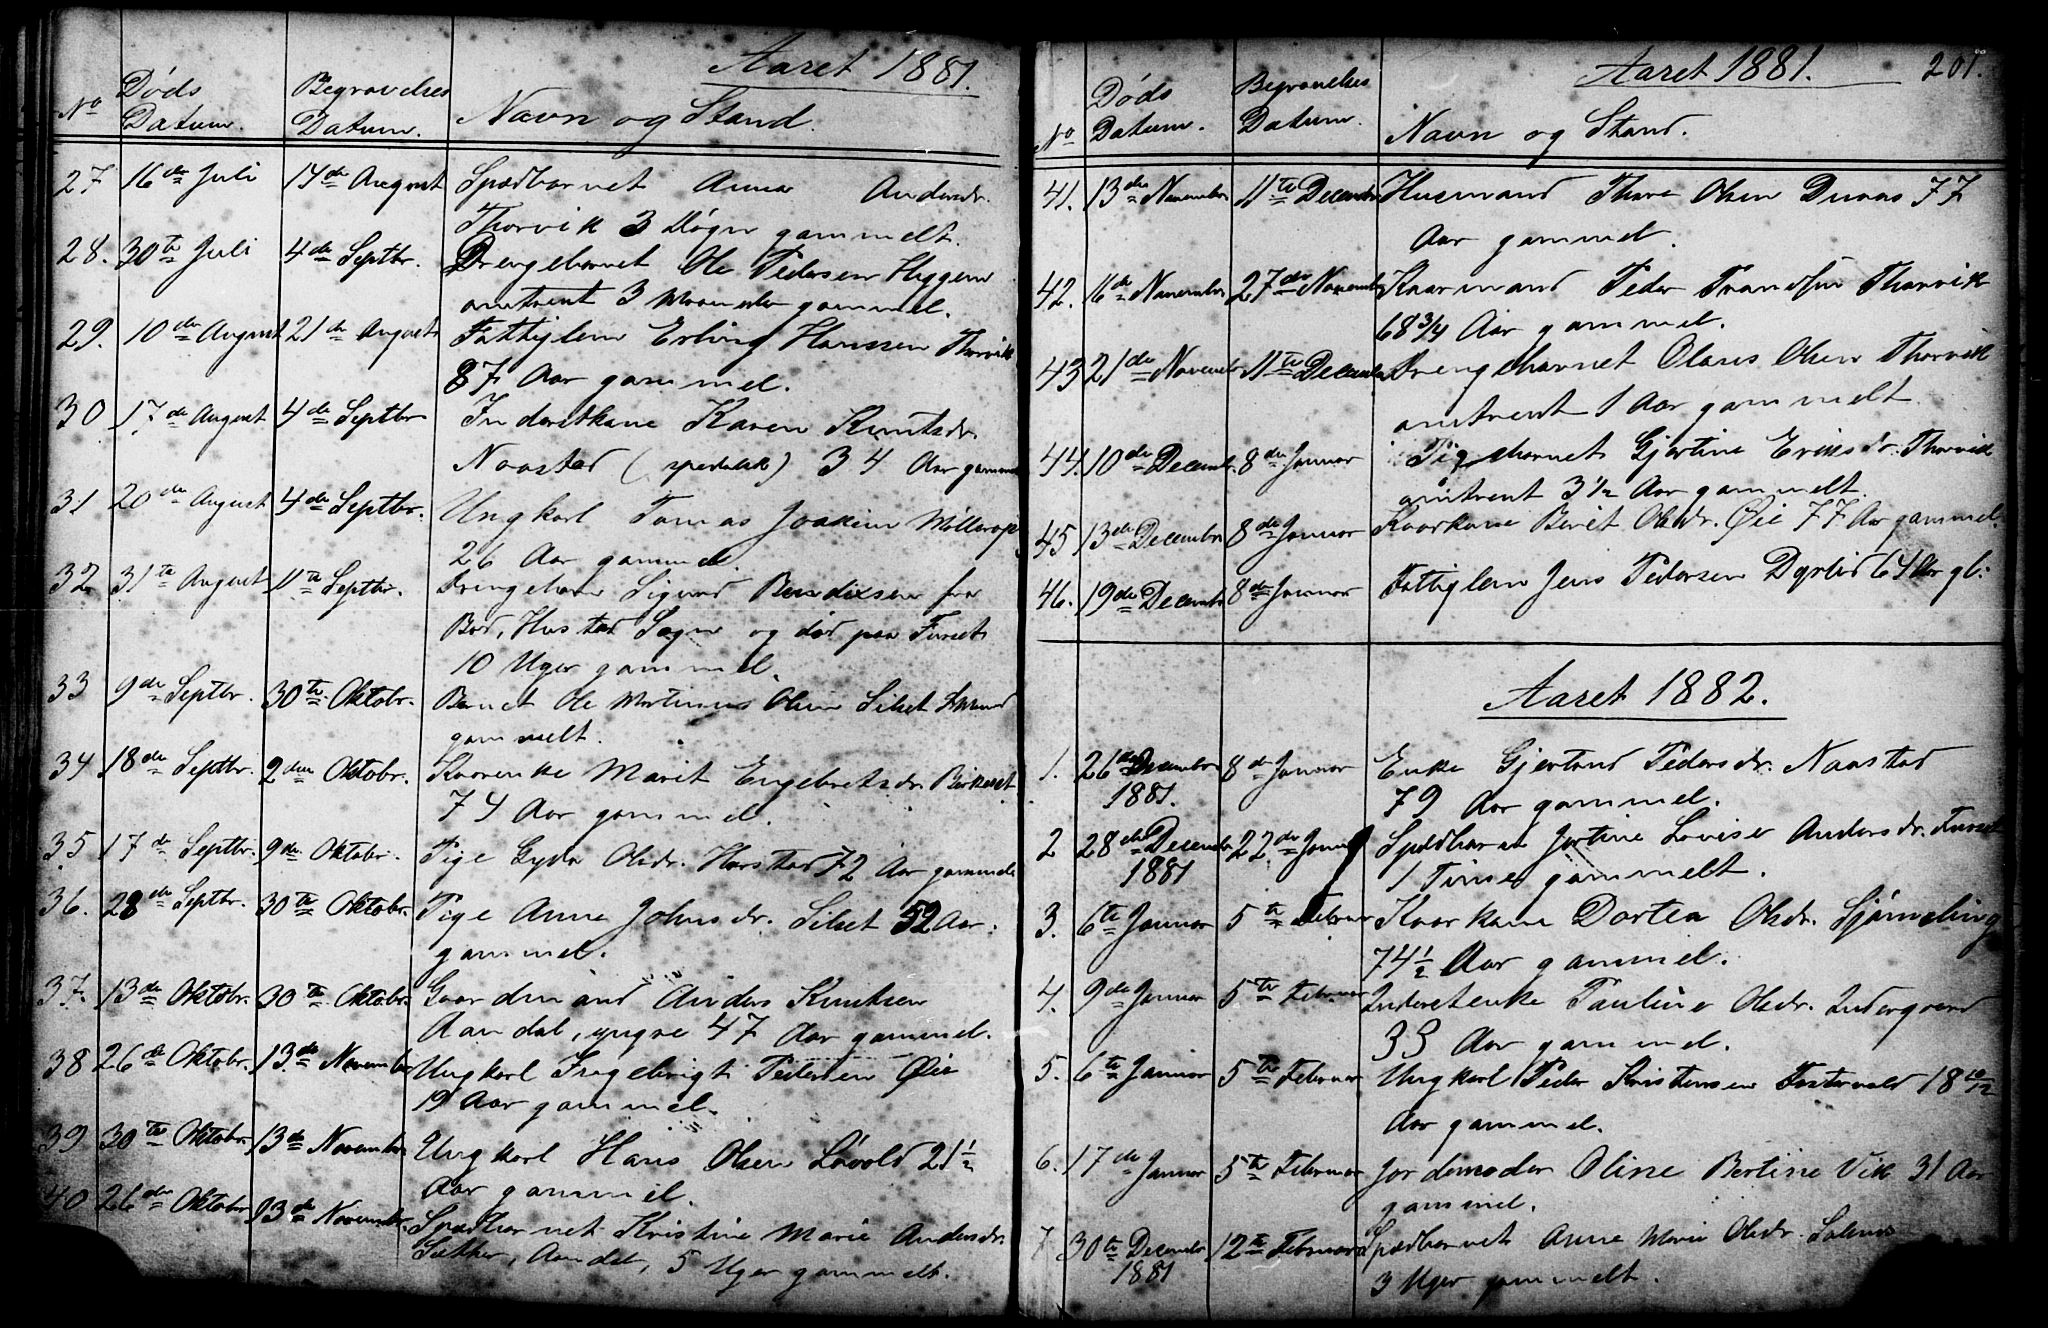 Aaret 1881.
No Døds Datum. Begravelses Datum. Navn og Stand.
27 16de Juli 14de August Spædbarnet Anna Andersdr.
Thorvik 3 Døgn gammelt.
28. 30te Juli 4de Septbr. Drengebarnet Ole Pedersen Higgem
omtrent 3 Maaneder gammel.
29. 10de August 21de August Fattiglem Erling Hanssen Thorvik
87 Aar gammel.
30 17de August 4de Septbr Inderstkone Karen Knutsdr.
Naastad (spedalsk) 34 Aar gammel
31 20de August 4de Septbr. Ungkarl Tomas Joakim
26 Aar gammel.
32 31te August 11te Septbr. Drengebarn Sigurd Bendixsen fra
Bod, Hustad Sogn og død paa Furset
10 Uger gammel.
33 9de Septbr. 30te Oktobr. Barnet Ole Martinus Olsen Silset
gammelt.
34 18de Septbr. 2den Oktobr. Kaarenke Marit Engebretsdr. Birkeset
74 Aar gammel.
35 17de Septbr. 9de Oktobr. Pige Gyda Olsdr. Harstad 72 Aar gammel
36. 28de Septbr. 30te Oktobr. Pige Anne Johnsdr. Silset 52 Aar
gammel.
37. 13de Oktobr. 30te Oktobr. Gaardmand Anders Knutsen
Aandal, yngre 47 Aar gammel.
38 26de Oktobr. 13de November Ungkarl Ingebrigt Pedersen Øie
19 Aar gammel.
39 30te Oktobr. 13de November Ungkarl Hans Olsen Løvold 21½
Aar gammel.
40 26de Oktobr 13de November. Spædbarnet Kristine Marie Andersdr.
Sæther, Aandal, 5 Uger gammelt.
Aaret 1881. 201.
No Døds Datum. Begravelses Datum. Navn og Stand.
41. 13de November 11te Decembr Husmand Thore Olsen Duaas 77
Aar gammel.
42. 16de November 27de Novembr Kaarmand Peder Trondsen Thorvik
68 3/4 Aar gammel.
43 21de Novembr 11te Decembr Drengebarnet Olaus Olsen Thorvik
omtrent 1 Aar gammelt.
44. 10de Decembr 8de Januar Pigebarnet Gjertine Eriksdr. Thorvik
omtrent 3½ Aar gammelt.
45 13de Decembr 8de Januar Kaarkone Berit Olsdr. Øie 77 Aar gammel.
46. 19de Decembr 8de Januar Fattiglem Jens Pedersen Dyrlid 64 Aar gl:
Aaret 1882.
1. 26de Decembr 8de Januar Enke Gjertrud Pedersdr. Naastad
1881. 79 Aar gammel.
2 28de Decembr 22de Januar Spædbarn Jertine Lovise Andersdr. Furset
1881 1 Time gammelt.
3. 6te Januar 5te Februar Kaarkone Dortea Olsdr. Gjømeling
74½ Aar gammel.
4. 9de Januar 5te Februar Inderstenke Pauline Olsdr. Indergaard
33 Aar gammel.
5. 6te Januar 5te Februar Ungkarl Peder Kristensen Fostervold 18 10/12
Aar gammel.
6. 17de Januar 5te Februar Jordemoder Oline Bertine Vik 31 Aar
gammel.
7. 30te Decembr 12te Februar Spædbarnet Anne Marie Olsdr. Solemo
1881 3 Uger gammelt.